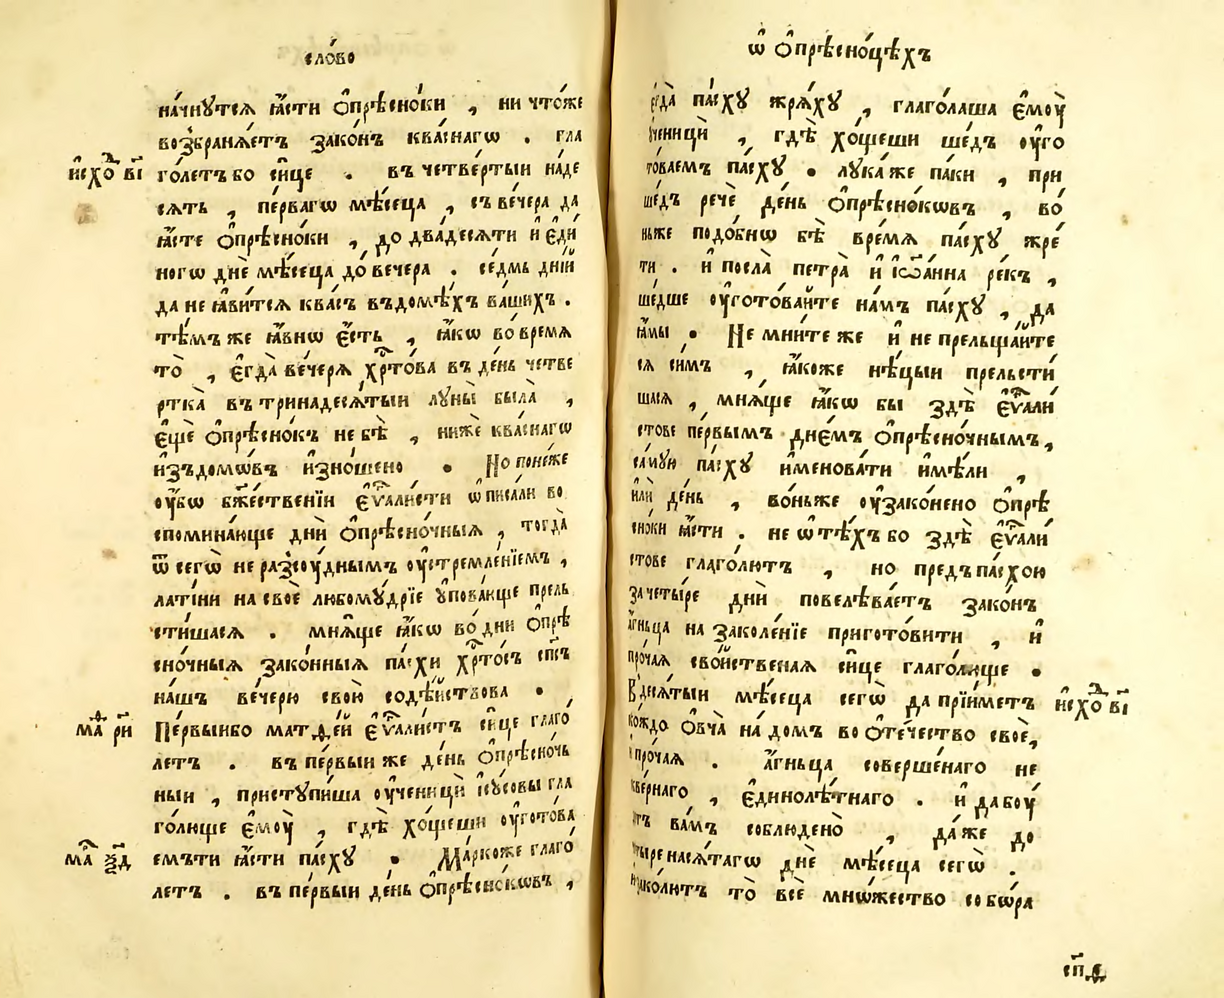 сло́во
нáчнутсѧ ꙗ҆́сти ѻ҆прѣсно́ки , ни что́же
возбранѧ́етъ зако́нъ ква́снагѡ . гла
и҆схо̑ в҃і
го́летъ бо си́це . въ четве́ртыи на́де
сѧть , пе́рвагѡ мѣ́сеца , съ ве́чера да
ꙗ҆́сте ѻ҆прѣсно́ки , до два́десѧти и҆ є҆ди́
ногѡ днѐ мѣ́сеца до ве́чера . се́дмь дні́й
да не ꙗ҆ви́тсѧ ква́съ въ домѣ́хъ ва́шихъ .
тѣ́мъ же ꙗ҆́внѡ є҆́сть , ꙗ҆́кѡ во вре́мѧ
то̀ , є҆гда̀ ве́черѧ хр҃то́ва въ де́нь четве
ртка̀ въ трина́десѧтыи луны̀ была̀ ,
є҆щѐ ѻ҆прѣсно́къ не бѣ̀ , нижѐ ква́снагѡ
и҆зъ домѡ́въ и҆зно́шено . Но поне́же
ᲂу҆́бѡ бж҃е́ственїи є҆ѵⷢ҇али́сти ѡ҆писа́ли во
спомина́юще днѝ ѻ҆прѣсно́чныѧ , тогда̀
ѿ сегѡ̀ не разсꙋ́днымъ ᲂу҆стремле́нїемъ ,
лати́ни на своѐ любомꙋ́дрїе ᲂу҆пова́юще прель
сти́шасѧ . мнѧ́ще ꙗ҆́кѡ во днѝ ѻ҆прѣ
сно́чныѧ зако́нныѧ па́схи хрⷭ҇то́съ сп҃съ
на́шъ вече́рю свою̀ содѣ́йствова .
маⷴ҇ р҃и
Пе́рвыи бо матѳе́й є҆ѵⷢ҇али́стъ си́це глаго́
летъ . въ пе́рвыи же де́нь ѻ҆прѣсно́чь
ныи , приступи́ша ᲂу҆ченицы̀ і҆су́совы гла
го́люще є҆мꙋ̀ , гдѣ̀ хо́щеши ᲂу҆гото́ва
маⷬ҇ ѯ҃д
емъ ти ꙗ҆́сти па́сху . Ма́рко же глаго́
летъ . въ пе́рвыи де́нь ѻ҆прѣсно́кѡвъ ,
ѡ҆ ѻ҆прѣсно́цѣхъ
є҆гда̀ па́сху жрѧ́ху , глаго́лаша є҆мꙋ̀
ᲂу҆ченицы̀ , гдѣ̀ хо́щеши ше́дъ ᲂу҆го
то́ваемъ па́сху . лука́ же па́ки , при
ше́дъ речѐ де́нь ѻ҆прѣсно́кѡвъ , во́
ньже подо́бнѡ бѣ̀ вре́мѧ па́сху жре́
ти . и҆ посла̀ петра̀ и҆ і҆ѡа́нна ре́къ ,
ше́дше ᲂу҆гото́вайте на́мъ па́сху , да
ꙗ҆́мы . Не мни́те же и҆ не прельща́йте
сѧ си́мъ , ꙗ҆́коже нѣ́цыи прельсти́
шасѧ , мнѧ́ще ꙗ҆́кѡ бы здѣ̀ є҆ѵⷢ҇али́
стове пе́рвымъ дне́мъ ѻ҆прѣсно́чнымъ ,
са́мую па́сху и҆менова́ти и҆мѣ́ли ,
и҆лѝ де́нь , во́ньже ᲂу҆зако́нено ѻ҆прѣ
сно́ки ꙗ҆́сти . не ѡ҆ тѣ́хъ бо здѣ̀ є҆ѵⷢ҇али́
стове глаго́лютъ , но предъ па́схою
за четы́ре днѝ повелѣва́етъ зако́нъ
а҆́гньца на заколе́нїе пригото́вити , и҆
про́чаѧ сво́йственаѧ си́це глаго́люще .
и҆схо̑ в҃і
В десѧ́тыи мѣ́сеца сегѡ̀ да прїи́метъ
ко́ждо ѻ҆вча̀ на до́мъ во ѻ҆те́чество своѐ ,
и҆ про́чаѧ . а҆́гньца соверше́наго не
скве́рнаго , є҆динолѣ́тнаго . и҆ да бꙋ́
детъ ва́мъ соблюдено̀ , да́же до
четы́ренасѧ́тагѡ днѐ мѣ́сеца сегѡ̀ .
и҆ зако́литъ то̀ всѐ мно́жество собо́ра
сп҃д